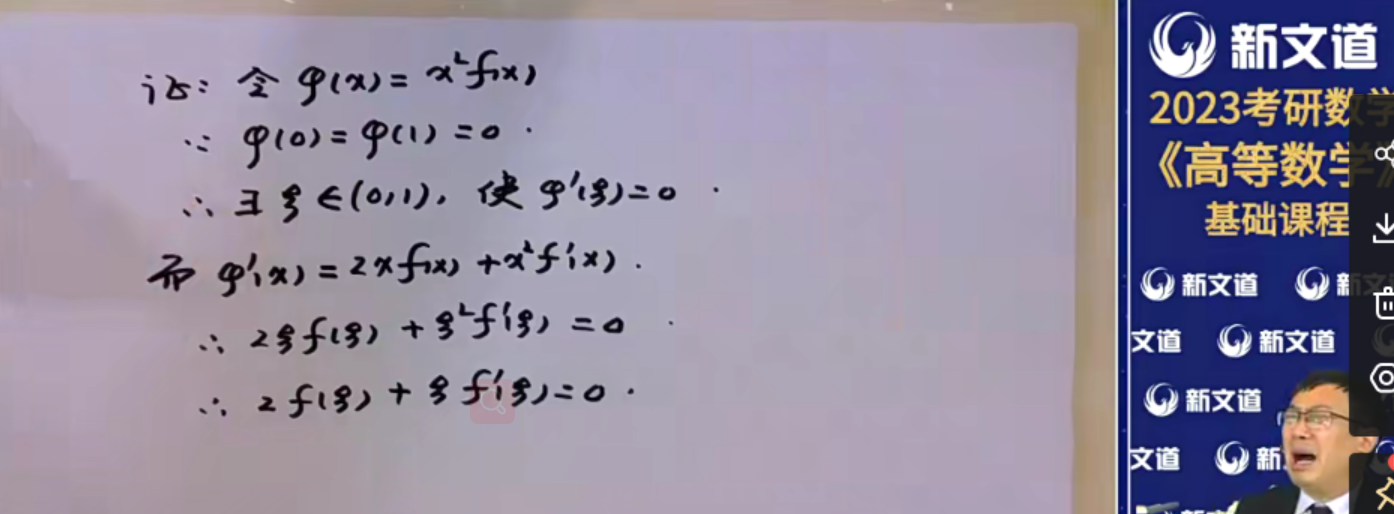 证: 令 φ(x) = x²f(x)
∵ φ(0) = φ(1) = 0 .
∴ ∃ ξ ∈ (0,1), 使 φ'(ξ) = 0 .
而 φ'(x) = 2x f(x) + x²f'(x) .
∴ 2ξf(ξ) + ξ²f'(ξ) = 0 .
∴ 2f(ξ) + ξf'(ξ) = 0 .
新文道
2023考研数学
《高等数学》
基础课程
新文道 新文道
文道 新文道
新文道
文道 新
新文道